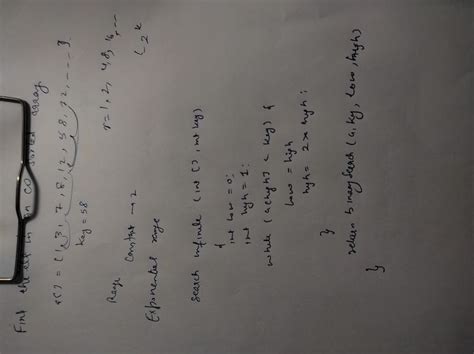 Find the in an ∞ sorted array
r[] = {1, 3, 7, 8, 12, 58, 72, --- }
key = 58
r = 1, 2, 4, 8, 16, ---
Range Constant → 2
(2^k
Exponential range
search infinite (int [], int key)
{
int low = 0;
int high = 1;
while (a[high] < key) {
low = high
high = 2 x high;
}
return binary search (a, key, low, high)
}